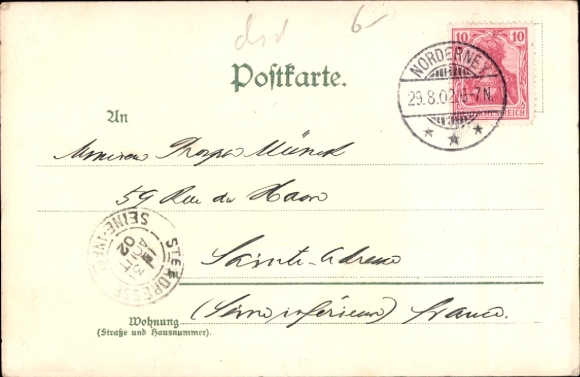 6-
10 10
NORDERNEY
29.8.02.6-7N.
Postkarte.
An
Monsieur Münck
59 Rue du Havre
Sainte-Adresse
(Seine inférieure) France.
STE ADRESSE
SEINE-INF
31
AOUT
02
Wohnung
(Straße und Hausnummer).